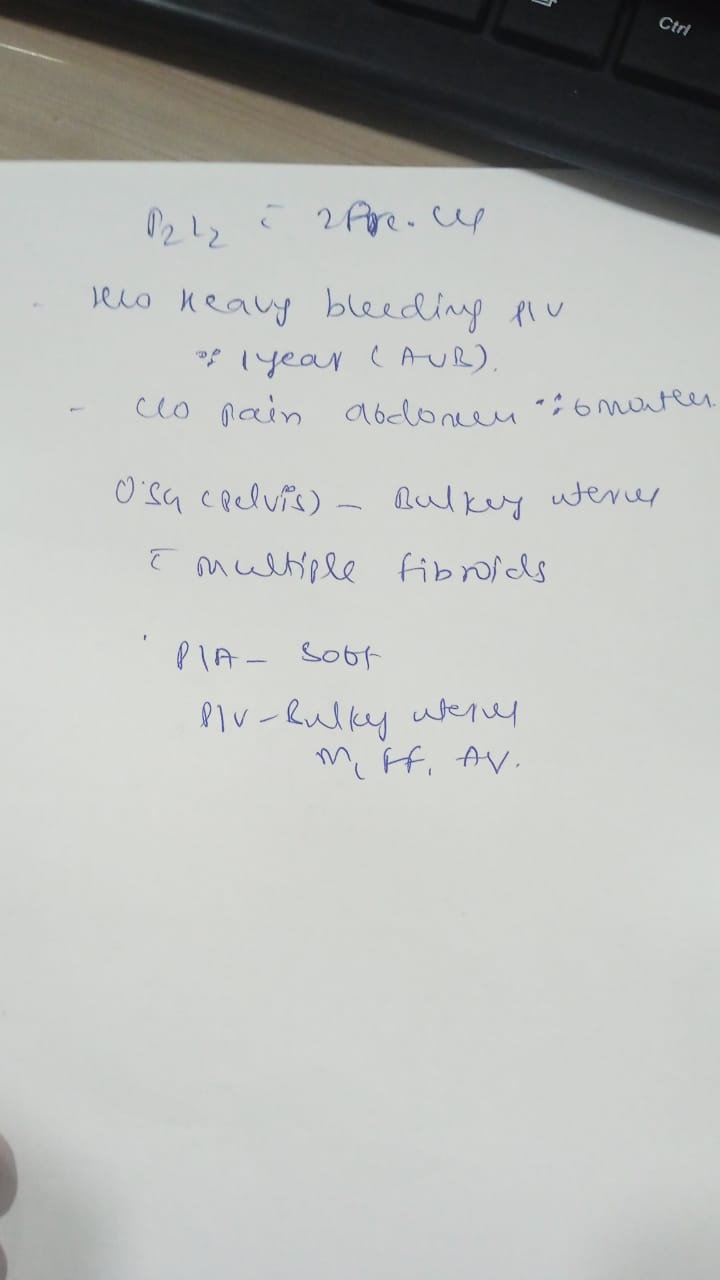 Ctrl
P2L2 c̄ 2 Pre. CS
H/O Heavy bleeding P/V
of 1 year (AUB).
- C/O pain abdomen 6 months.
USG (Pelvis) - Bulkey uterus
c̄ multiple fibroids
P/A - Soft
P/V - Bulky uterus
M, FF, AV.